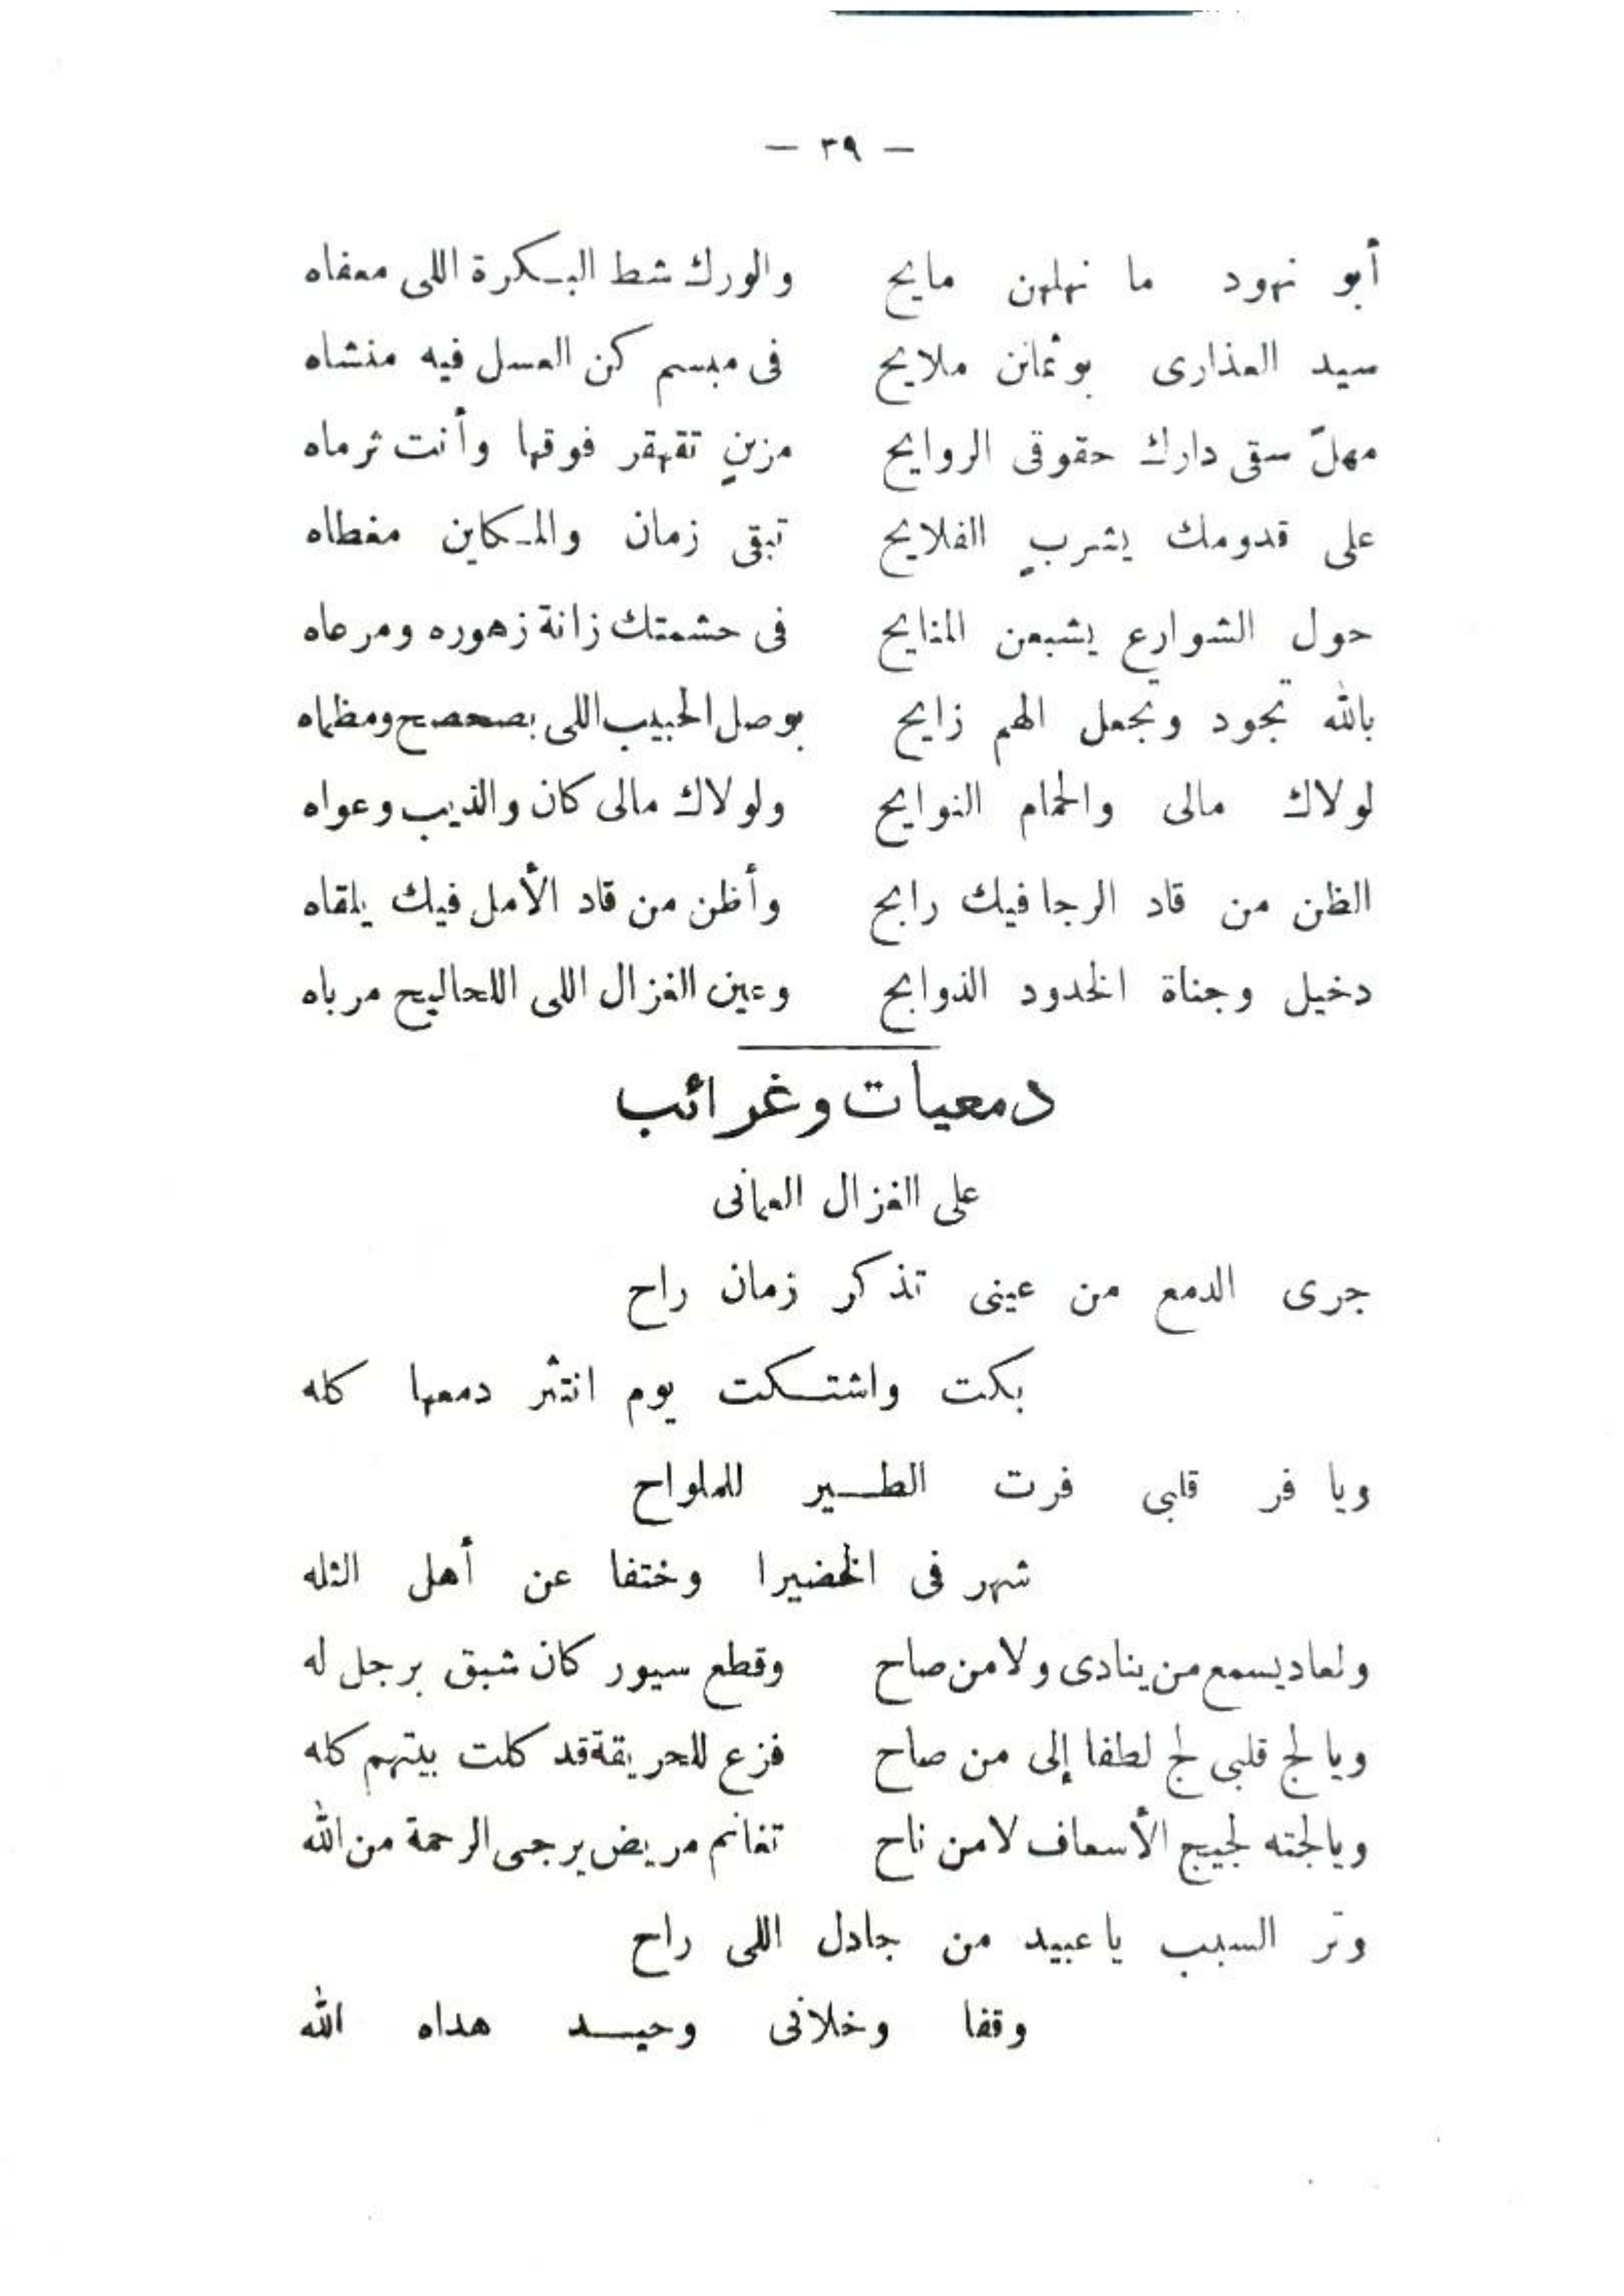 — ٣٩ —
أبو نهود ما نهلهن مايح والورك شط البكرة اللى معفاه
سيد العذارى بوثمانن ملايح فى مبسم كن العسل فيه منشاه
مهلّ سقى دارك حقوقى الروايح مزنٍ تقهقر فوقها وأنت ثرماه
على قدومك يشربٍ الفلايح تبقى زمان والمكاين مغطاه
حول الشوارع يشبعن المنايح فى حشمتك زانة زهوره ومرعاه
بالله تجود وتجعل الهم زايح بوصل الحبيب اللى بصحصح ومظماه
لولاك مالى والحمام النوايح ولولاك مالى كان والذيب وعواه
الظن من قاد الرجا فيك رابح وأظن من قاد الأمل فيك يلقاه
دخيل وجناة الخدود الذوابح وعين الغزال اللى اللحاليح مرباه
دمعيات وغرائب
على الغزال العمانى
جرى الدمع من عينى تذكر زمان راح
بكت واشتكت يوم انتثر دمعها كله
ويا فر قلبى فرت الطير للملواح
شهر فى الخضيرا وختفا عن أهل الثله
ولعاد يسمع من ينادى ولا من صاح وقطع سيور كان شبق برجل له
ويا لج قلبى لج لطفا إلى من صاح فزع للحريقة قد كلت بيتهم كله
ويا لجته لجيج الأسعاف لا من ناح تغانم مريض يرجى الرحمة من الله
وتر السبب يا عبيد من جادل اللى راح
وقفا وخلانى وحيد هداه الله